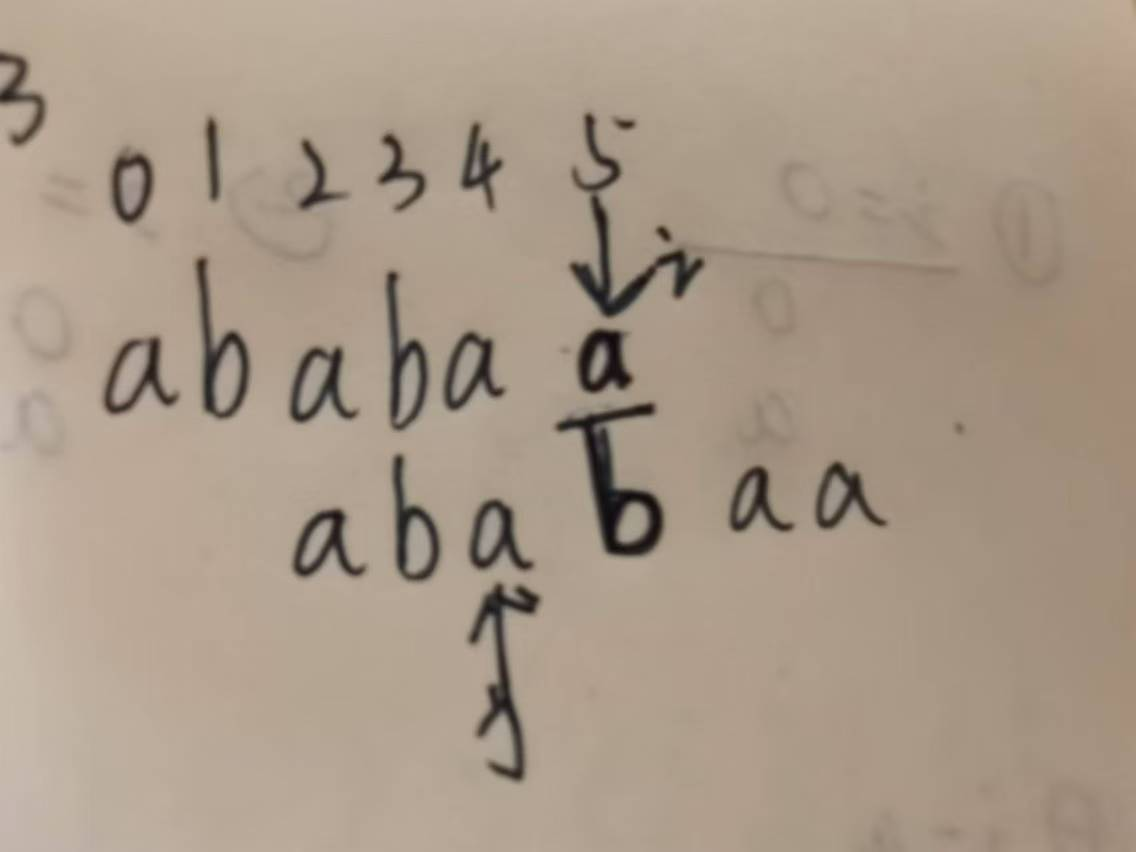 3
0 1 2 3 4 5
i
a b a b a a
a b a b a a
j